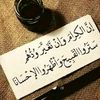 إِنَّ الكِرَامَ وَإِنْ تَغَيَّرَ وُدُّهُمْ
سَتَرُوا القَبِيحَ وَأَظْهَرُوا الإِحْسَانَا